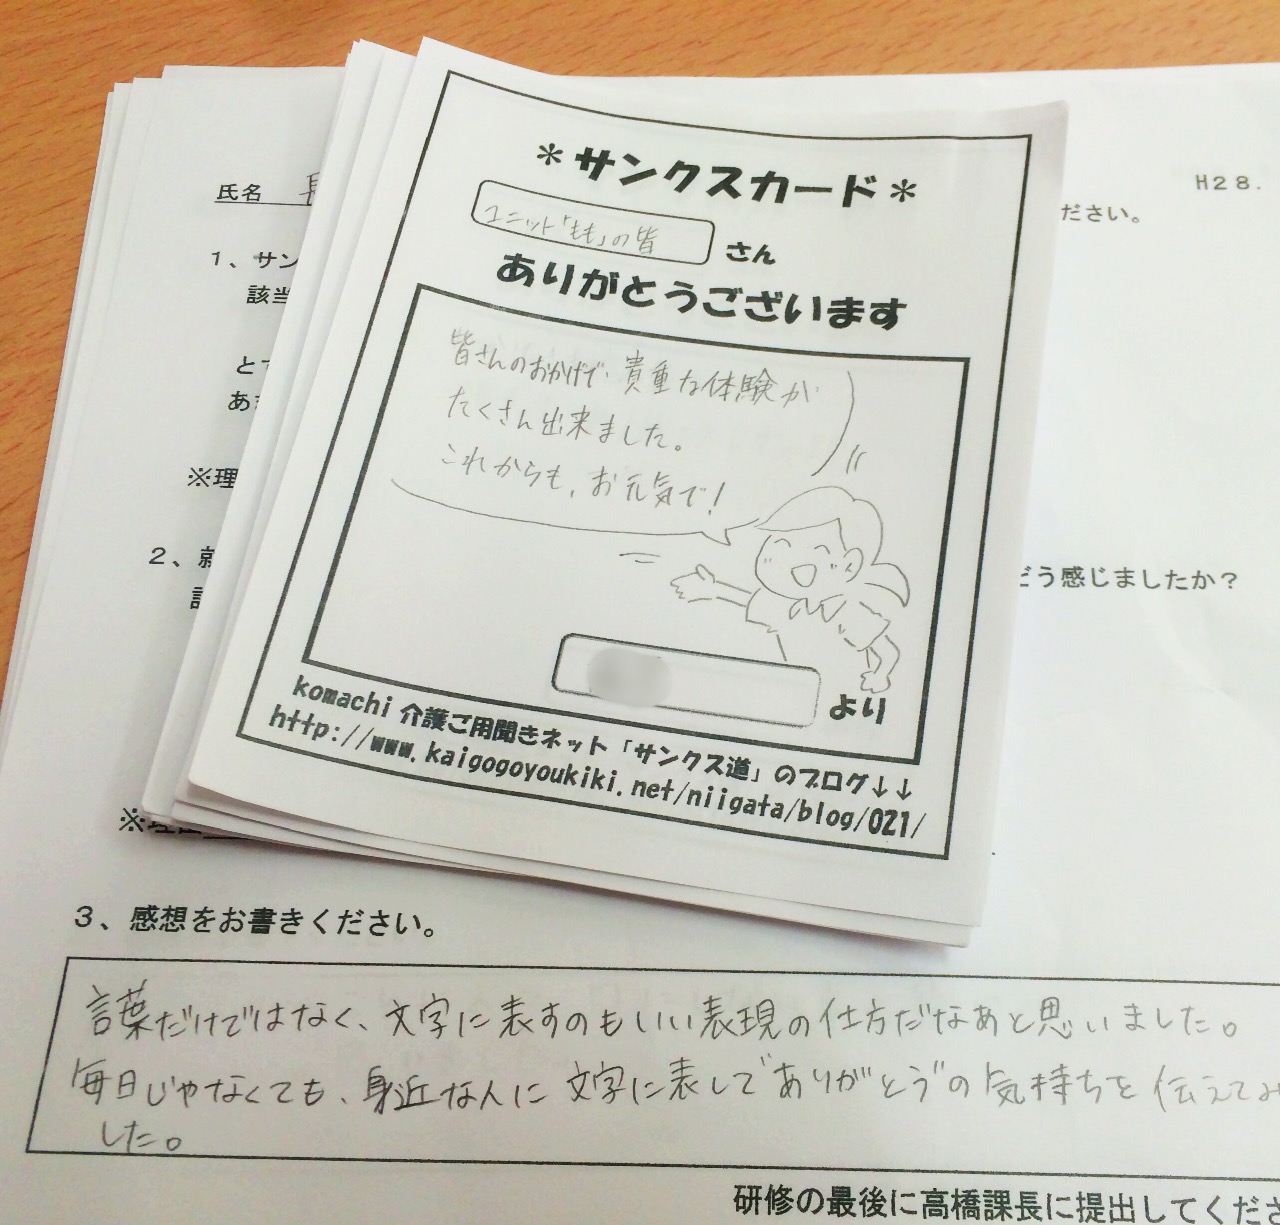 ＊サンクスカード＊
ユニット「もも」の皆 さん
ありがとうございます
皆さんのおかげで、貴重な体験が
たくさん出来ました。
これからも、お元気で！
より
komachi 介護ご用聞きネット「サンクス道」のブログ↓↓
http://www.kaigogoyoukiki.net/niigata/blog/021/
H28.
氏名
ださい。
1、サン
該当
とて
※理
2、就
どう感じましたか？
※理由
3、感想をお書きください。
言葉だけではなく、文字に表すのもいい表現の仕方だなあと思いました。
毎日じゃなくても、身近な人に文字に表して“ありがとう”の気持ちを伝えてみ
した。
研修の最後に高橋課長に提出してくださ